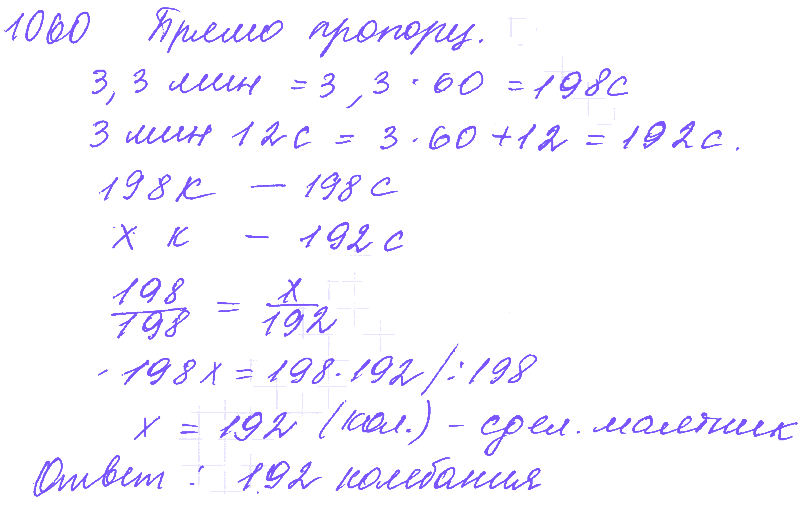 1060 Прямо пропорц.
3,3 мин = 3,3 · 60 = 198 с
3 мин 12 с = 3 · 60 + 12 = 192 с.
198 к — 198 с
х к — 192 с
198/198 = х/192
198х = 198 · 192 /:198
х = 192 (кол.) - сдел. маятник
Ответ: 192 колебания